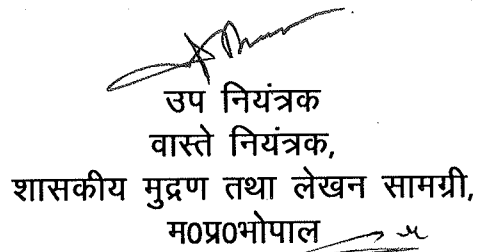 उप नियंत्रक
वास्ते नियंत्रक,
शासकीय मुद्रण तथा लेखन सामग्री,
म0प्र0भोपाल